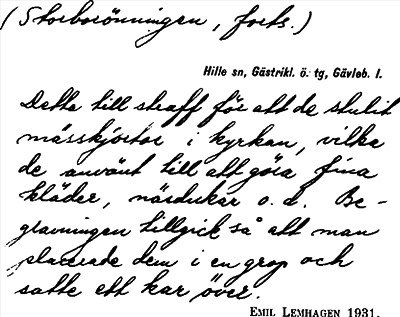 (Storborönningen, forts.)
Hille sn, Gästrikl. ö. tg, Gävleb. l.
Detta till straff för att de stulit
mässkjortor i kyrkan, vilka
de använt till att göra fina
kläder, näsdukar o. d. Be-
gravningen tillgick så att man
placerade dem i en grop och
satte ett kar över.
EMIL LEMHAGEN 1931.